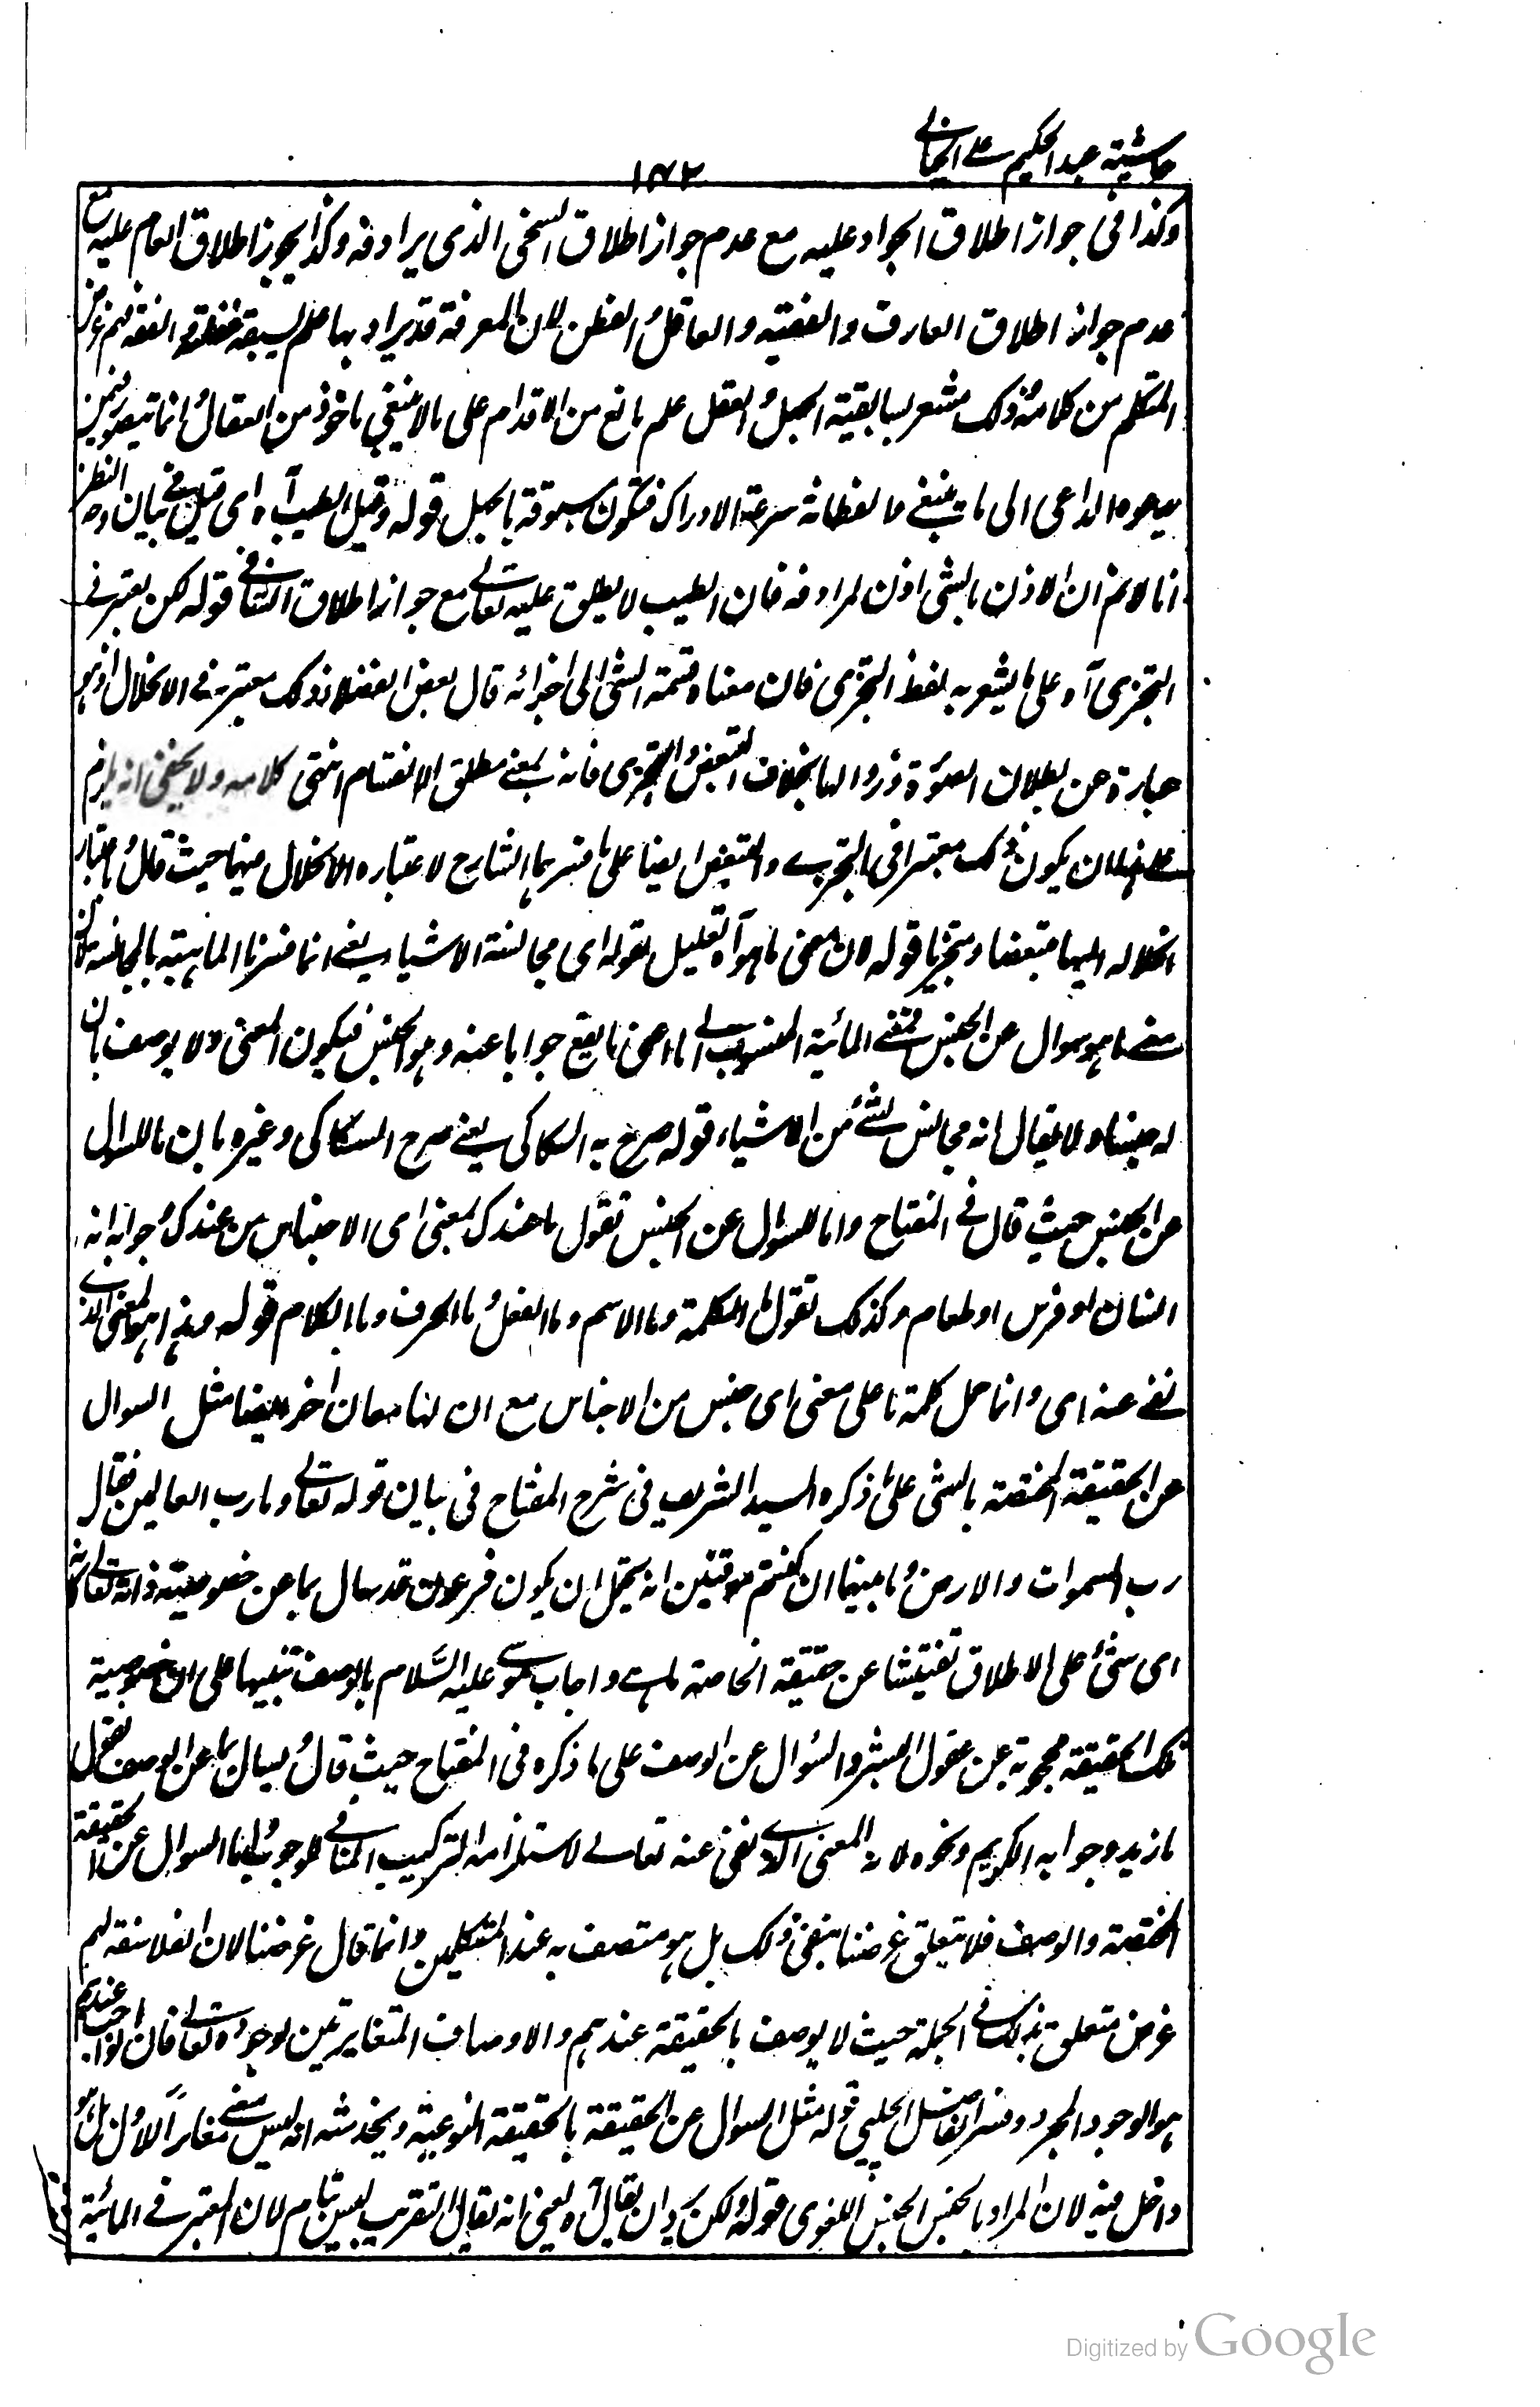 حاشية عبد الحكيم على الخيالى
١٧٢
وكذا فى جواز اطلاق الجواد عليه مع عدم جواز اطلاق السخى الذى يرادفه وكذا يجوز اطلاق العام عليه مع
عدم جواز اطلاق العارف والفقيه والعاقل والفطن لان المعرفة قد يراد بها علم يسبقه غفلة والفقه فهم غرض
المتكلم من كلامه وذلك مشعر بسابقية الجهل والعقل علم مانع من الاقدام على ما لا ينبغى ماخوذ من العقال وانما يتصور فيمن
يدعوه الداعى الى ما لا ينبغى والفطانة سرعة الادراك فتكون مسبوقة بالجهل قوله وقيل الطبيب آه اى قيل فى بيان وجه النظر
انا لا نم ان الاذن بالشئ اذن لمرادفه فان الطبيب لا يطلق عليه تعالى مع جواز اطلاق الشافى قوله لكن يعتبر فى
التجزى آه على ما يشعر به لفظ التجزى فان معناه قسمة الشئ الى اجزائه قال بعض الفضلاء ذلك معتبر فى الانحلال اذ هو
عبارة عن بطلان الصورة وزوالها بخلاف التبعض والتجزى فانه بمعنى مطلق الانقسام انتهى كلامه ولا يخفى انه يلزم
على هذا ان يكون ذلك معتبرا فى التجزى والتبعض ايضا على ما فسر بها الشارح لاعتباره الانحلال فيهما حيث قال وباعتبار
انحلاله اليها متبعضا ومتجزيا قوله لان معنى ما هو آه تعليل لقوله اى مجانسة الاشياء يعنى انما فسرنا المائية بالمجانسة لان
معنى ما هو سوال عن الجنس فمعنى المائية المنسوب الى ما اعنى ما يقع جوابا عنه وهو الجنس فيكون المعنى ولا يوصف بان
له جنسا ولا يقال انه مجانس لشئ من الاشياء قوله صرح به السكاكى يعنى صرح السكاكى وغيره بان ما للسوال
عن الجنس حيث قال فى المفتاح واما للسوال عن الجنس تقول ما عندك بمعنى اى الاجناس من عندك وجوابه انه
انسان او فرس او طعام وكذلك تقول ما الكلمة وما الاسم وما الفعل وما الحرف وما الكلام قوله وهذا هو المعنى الذى
نفى عنه اى وانما حمل كلمة ما على معنى اى جنس من الاجناس مع ان لها معان اخر ايضا مثل السوال
عن الحقيقة المختصة بالشئ على ما ذكره السيد الشريف فى شرح المفتاح فى بيان قوله تعالى وما رب العالمين فقال
رب السموات والارض وما بينهما ان كنتم موقنين انه يحتمل ان يكون فرعون قد سال بما عن خصوصية ذاته تعالى كانه قال
اى شئ على الاطلاق تفتيشا عن حقيقة الخاصة ما هى واجاب موسى عليه السلام بالوصف تنبيها على ان خصوصية
تلك الحقيقة محجوبة عن عقول البشر والسؤال عن الوصف على ما ذكره فى المفتاح حيث قال ويسال بما عن الوصف تقول
ما زيد وجوابه الكريم ونحوه لانه المعنى الذى نفى عنه تعالى لاستلزامه التركيب المنافى للوجوب واما السوال عن الحقيقة
المختصة والوصف فلا يتعلق غرضنا بنفى ذلك بل هو متصف به عند المتكلمين وانما قال غرضنا لان الفلاسفة لهم
غرض متعلق بذلك فى الجملة حيث لا يوصف بالحقيقة عندهم والاوصاف المتغايرتين لوجوده تعالى فان الواجب عندهم
هو الوجود المجرد وفسر الفاضل الچلپى قوله مثل السوال عن الحقيقة بالحقيقة النوعية ويخدشه انه ليس معنى مغايرا للاول بل هو
داخل فيه لان المراد بالجنس الجنس اللغوى قوله ولكن يرد ان يقال آه يعنى انه يقال التقريب ليس بتام لان المعتبر فى المائية